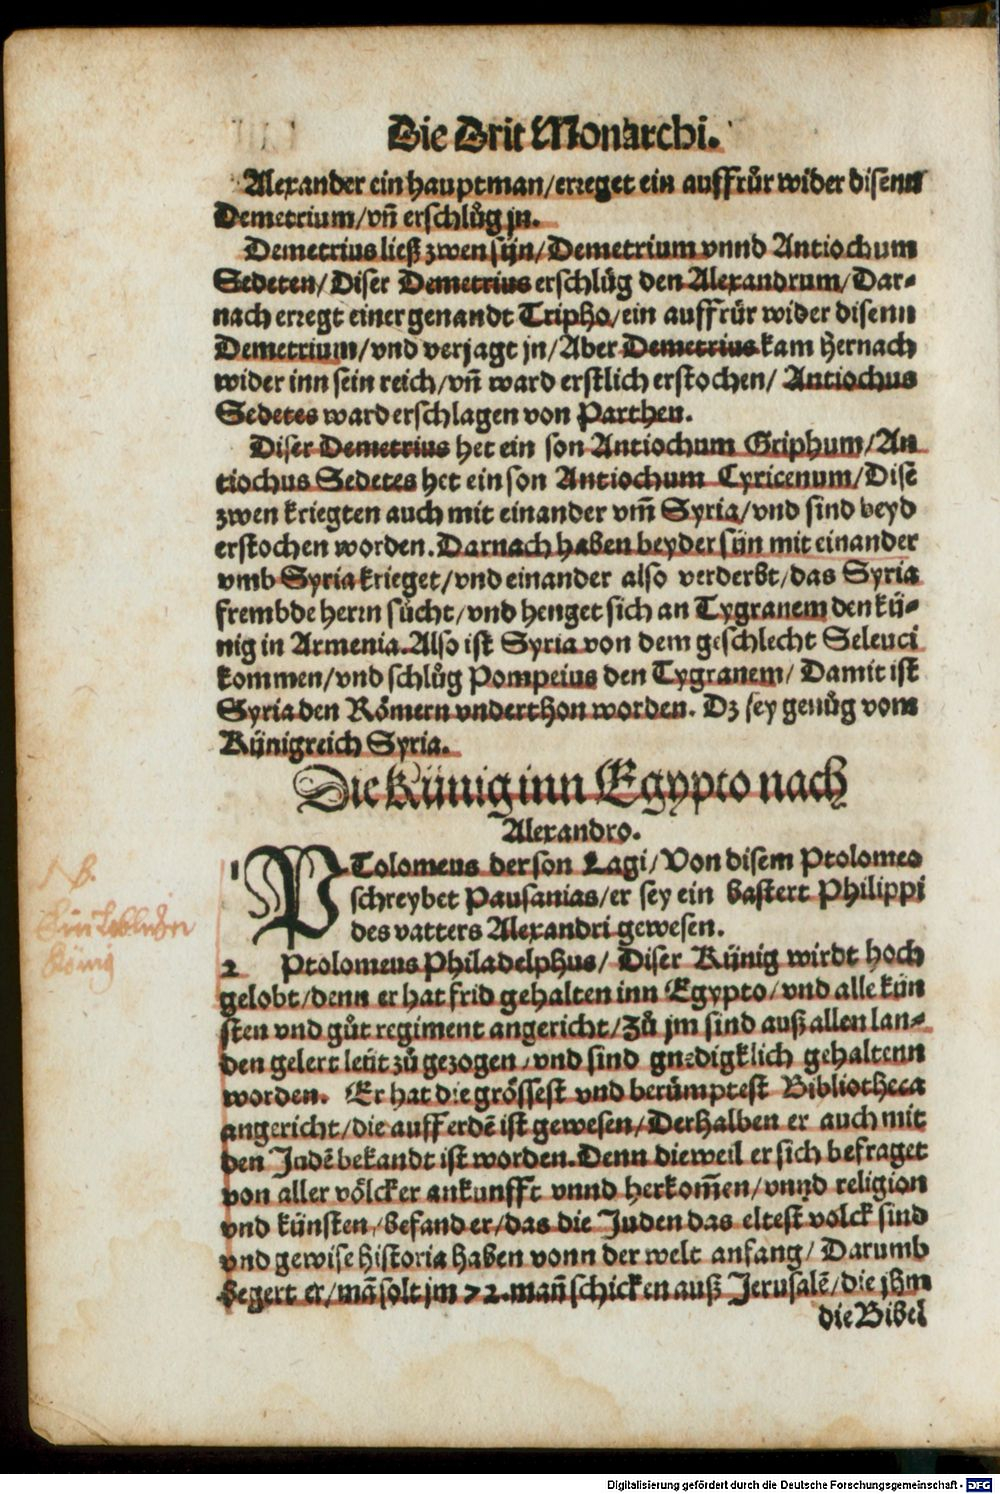 Die Drit Monarchi.
Alexander ein hauptman/erreget ein auffrůr wider disenn
Demetrium/vñ erschlůg jn.
Demetrius ließ zwen sün/Demetrium vnnd Antiochum
Sedeten/Diser Demetrius erschlůg den Alexandrum/Dar-
nach erregt einer genandt Tripho/ein auffrůr wider disenn
Demetrium/vnd verjagt jn/Aber Demetrius kam hernach
wider inn sein reich/vñ ward erstlich erstochen/ Antiochus
Sedetes ward erschlagen von Parthen.
Diser Demetrius het ein son Antiochum Griphum/An
tiochus Sedetes het ein son Antiochum Cyricenum/Disẽ
zwen kriegten auch mit einander vm̃ Syria/vnd sind beyd
erstochen worden. Darnach haben beyder sün mit einander
vmb Syria krieget/vnd einander also verderbt/das Syria
frembde herrn sůcht/vnd henget sich an Tygranem den kü-
nig in Armenia. Also ist Syria von dem geschlecht Seleuci
kommen/vnd schlůg Pompeius den Tygranem/ Damit ist
Syria den Römern vnderthon worden. Dz sey genůg vom
Künigreich Syria.
Die Künig inn Egypto nach
Alexandro.
1 PTolomeus der son Lagi/Von disem Ptolomeo
schreybet Pausanias/er sey ein bastert Philippi
des vatters Alexandri gewesen.
2 Ptolomeus Philadelphus/ Diser Künig wirdt hoch
gelobt/denn er hat frid gehalten inn Egypto/vnd alle kün
sten vnd gůt regiment angericht/Zů jm sind auß allen lan-
den gelert leüt zů gezogen/vnd sind gnedigklich gehaltenn
worden. Er hat die grössest vnd berümptest Bibliotheca
angericht/die auff erdẽ ist gewesen/Derhalben er auch mit
den Judẽ bekandt ist worden. Denn dieweil er sich befraget
von aller völcker ankunfft vnnd herkom̃en/vnnd religion
vnd künsten/befand er/das die Juden das eltest volck sind
vnd gewise historia haben vonn der welt anfang/ Darumb
begert er/mã solt jm 72. mañ schicken auß Jerusalẽ/die jhm
die Bibel
NB.
König
Digitalisierung gefördert durch die Deutsche Forschungsgemeinschaft - DFG